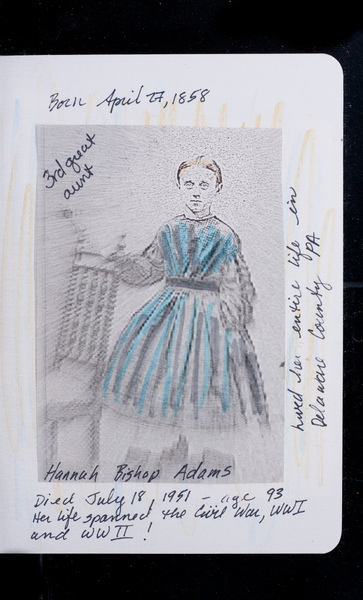 Born April 27, 1858
3rd great
aunt
lived her entire life in
Delaware County PA
Hannah Bishop Adams
Died July 18, 1951 - age 93
Her life spanned the Civil War, WWI
and WWII!